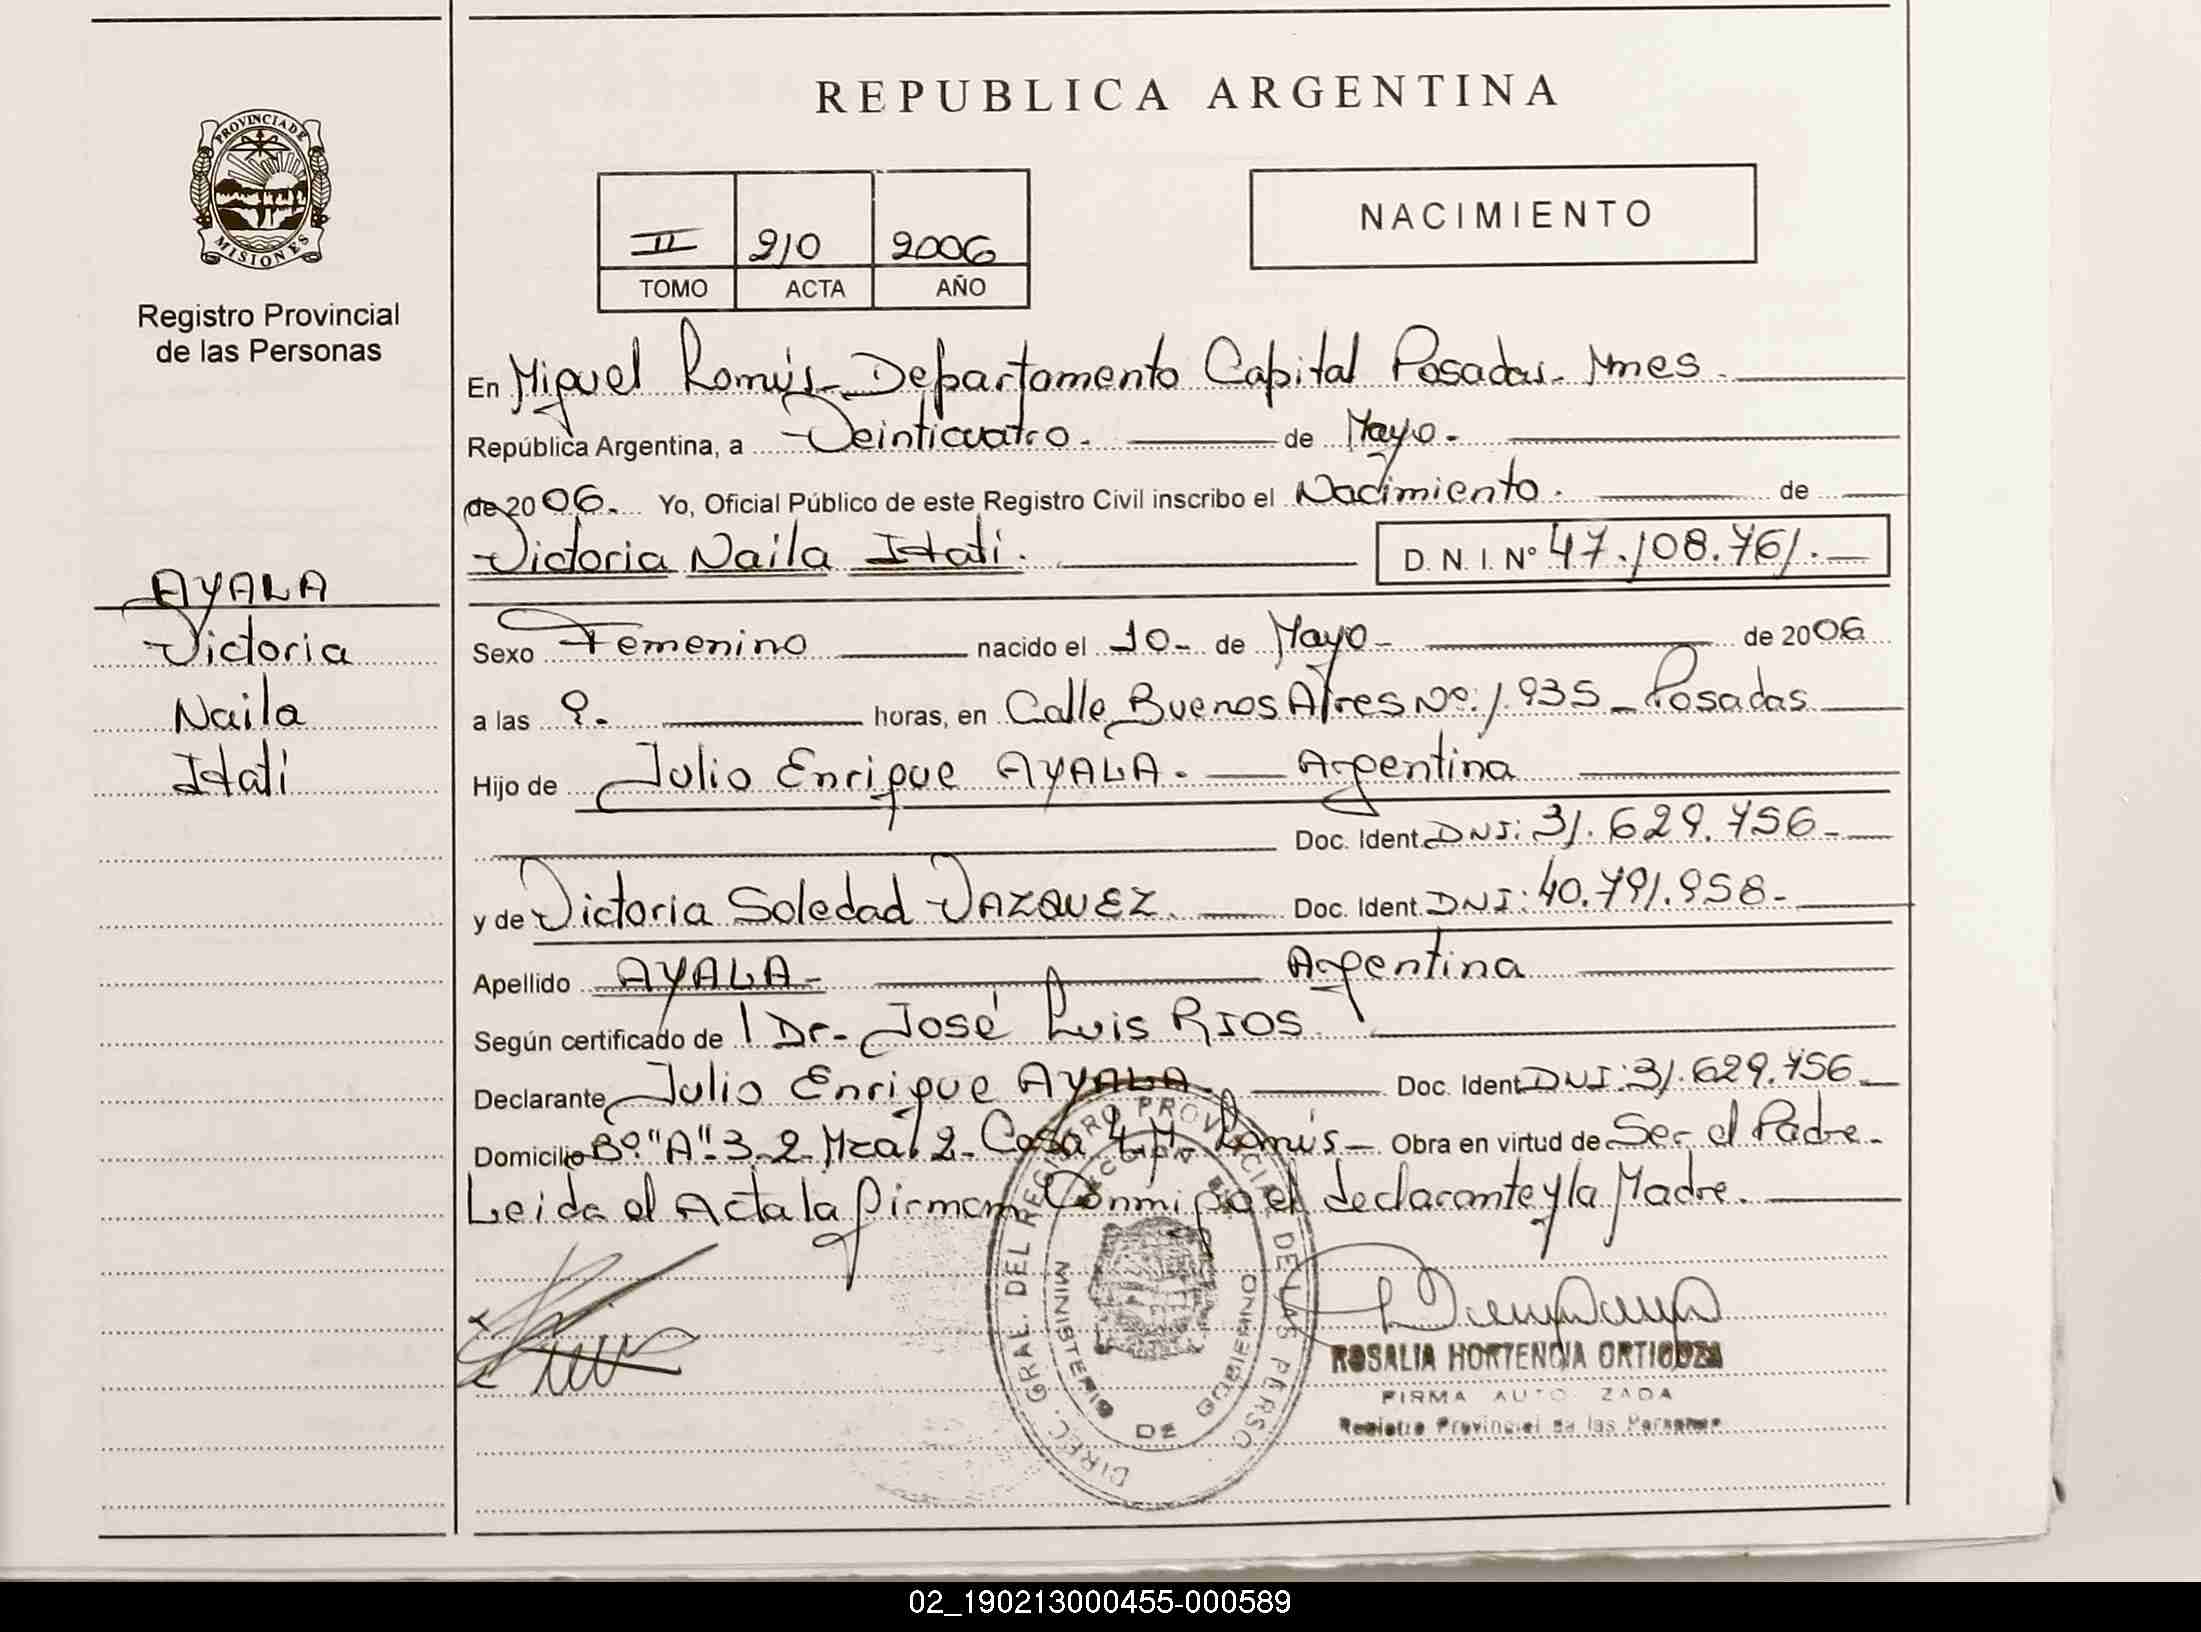 REPUBLICA ARGENTINA
PROVINCIA DE
MISIONES
Registro Provincial
de las Personas
II 210 2006
TOMO ACTA AÑO
NACIMIENTO
En Miguel Lanús - Departamento Capital Posadas - Mnes -
República Argentina, a Veinticuatro. de Mayo.
de 2006. Yo, Oficial Público de este Registro Civil inscribo el Nacimiento. de
Victoria Naila Itatí. D. N. I. Nº 47.108.761.-
AYALA
Victoria
Naila
Itatí
Sexo Femenino nacido el 10- de Mayo- de 2006
a las 9. horas, en Calle Buenos Aires Nº: 1.935 - Posadas
Hijo de Julio Enrique AYALA. Argentina
Doc. Ident. DNI: 31.629.756-
y de Victoria Soledad VAZQUEZ. Doc. Ident. DNI: 40.791.958-
Apellido AYALA- Argentina
Según certificado de l Dr. José Luis RIOS.
Declarante Julio Enrique AYALA. Doc. Ident. DNI: 31.629.756-
Domicilio Bº. "A". 3.2 Casa Lanús - Obra en virtud de Ser el Padre.
Leida el Acta la firman Conmigo el declarante y la Madre.
DIREC. GRAL. DEL REGISTRO PROVINCIAL DE LAS PERSO
MINISTERIO DE GOBIERNO
ROSALIA HORTENCIA ORTIGOZA
FIRMA AUTO ZADA
Registro Provincial de las Personas
02_190213000455-000589